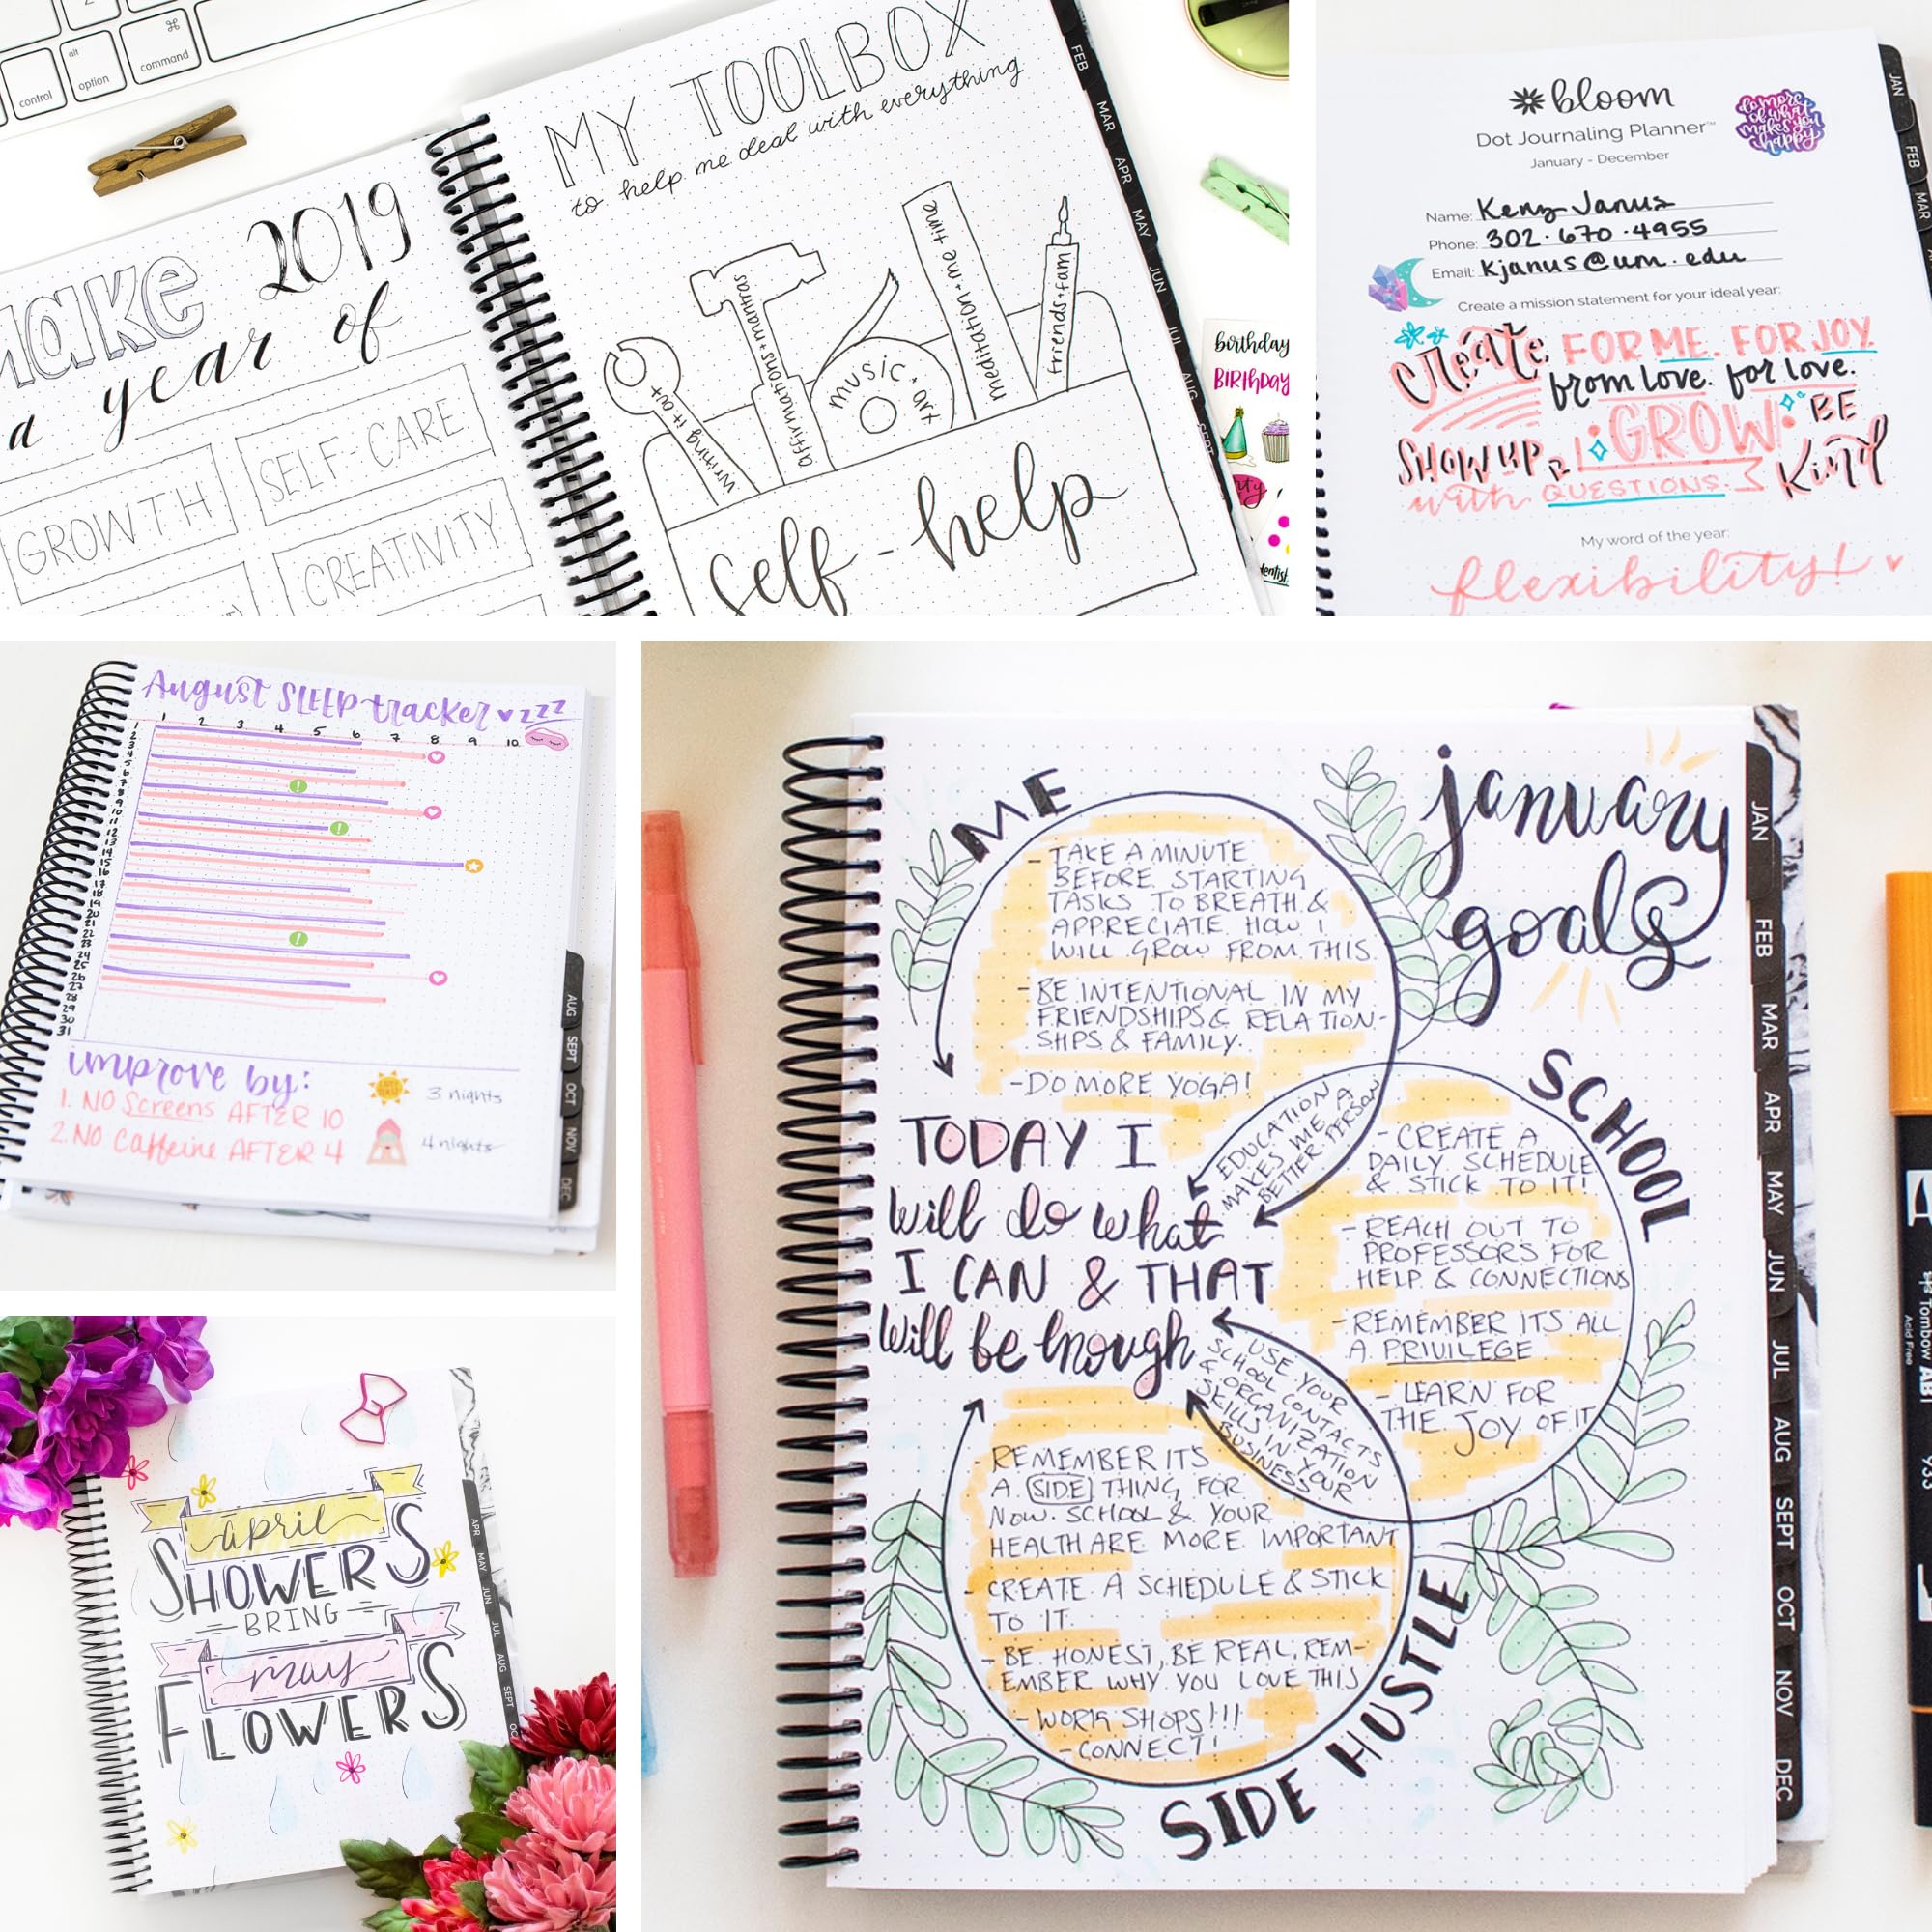 alt
option
⌘
command
control
Make 2019
a year of
GROWTH
SELF-CARE
CREATIVITY
MY TOOLBOX
to help me deal with everything
writing it out
affirmations + mantras
MUSIC +
meditation + me time
friends + fam
self-help
FEB
MAR
APR
MAY
JUN
JUL
AUG
SEPT
birthday
BIRTHDAY
bloom
Dot Journaling Planner™
January - December
do more
of what
makes you
happy
Name: Kenz Janus
Phone: 302.670.4955
Email: Kjanus@um.edu
Create a mission statement for your ideal year:
Create FOR ME. FOR JOY
from love. for love.
SHOW UP GROW BE
with QUESTIONS. Kind
My word of the year:
flexibility!
JAN
FEB
MAR
August SLEEP tracker zzz
1 2 3 4 5 6 7 8 9 10
1
2
3
4
5
6
7
8
9
10
11
12
13
14
15
16
17
18
19
20
21
22
23
24
25
26
27
28
29
30
31
improve by:
1. NO Screens AFTER 10
2. NO Caffeine AFTER 4
3 nights
4 nights
AUG
SEPT
OCT
NOV
DEC
april
SHOWERS
BRING
may
FLOWERS
APR
MAY
JUN
JUL
AUG
SEPT
january
goals
ME
- TAKE A MINUTE
BEFORE STARTING
TASKS TO BREATH &
APPRECIATE HOW I
WILL GROW FROM THIS.
- BE INTENTIONAL IN MY
FRIENDSHIPS & RELATION-
SHIPS & FAMILY.
- DO MORE YOGA!
EDUCATION
MAKES ME A
BETTER PERSON
SCHOOL
- CREATE A
DAILY SCHEDULE
& STICK TO IT!
- REACH OUT TO
PROFESSORS FOR
HELP & CONNECTIONS
- REMEMBER ITS ALL
A PRIVILEGE
- LEARN FOR
THE JOY OF IT
TODAY I
will do what
I CAN & THAT
will be enough
USE YOUR
SCHOOL CONTACTS
& ORGANIZATION
SKILLS IN YOUR
BUSINESS
- REMEMBER IT'S
A SIDE THING FOR
NOW. SCHOOL & YOUR
HEALTH ARE MORE IMPORTANT
- CREATE A SCHEDULE & STICK
TO IT.
- BE HONEST, BE REAL, REM-
EMBER WHY YOU LOVE THIS
- WORK SHOPS!!!
- CONNECT!
SIDE HUSTLE
JAN
FEB
MAR
APR
MAY
JUN
JUL
AUG
SEPT
OCT
NOV
DEC
Tombow
Acid Free
933